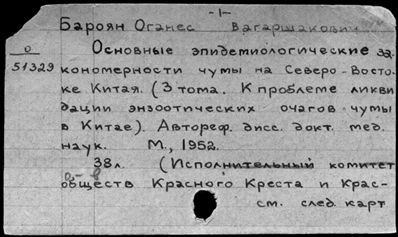 -1-
Бароян Оганес Вагаршакович
О
51329
Основные эпидемиологические за
кономерности чумы на Северо-Восто-
ке Китая. (3 тома. К проблеме ликви
дации энзоотических очагов чумы
в Китае). Автореф. дисс. докт. мед.
наук. М., 1952.
38л. (Исполнительный комитет
обществ Красного Креста и Крас-
см. след карт